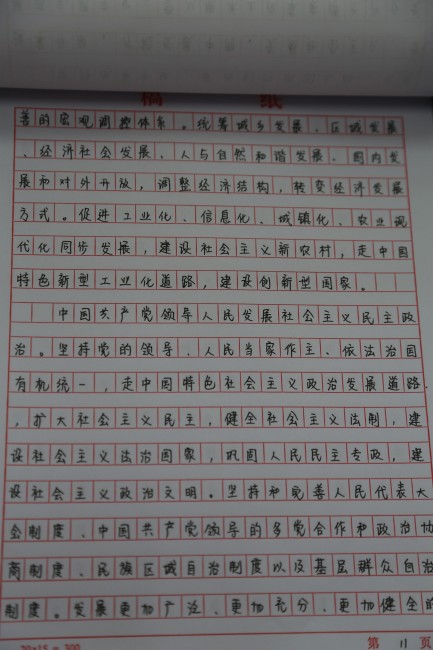 稿 纸
善的宏观调控体系。统筹城乡发展、区域发展
、经济社会发展、人与自然和谐发展、国内发
展和对外开放，调整经济结构，转变经济发展
方式。促进工业化、信息化、城镇化、农业现
代化同步发展，建设社会主义新农村，走中国
特色新型工业化道路，建设创新型国家。
中国共产党领导人民发展社会主义民主政
治。坚持党的领导、人民当家作主、依法治国
有机统一，走中国特色社会主义政治发展道路
，扩大社会主义民主，健全社会主义法制，建
设社会主义法治国家，巩固人民民主专政，建
设社会主义政治文明。坚持和完善人民代表大
会制度、中国共产党领导的多党合作和政治协
商制度、民族区域自治制度以及基层群众自治
制度。发展更加广泛、更加充分、更加健全的
20×15=300 第 11 页